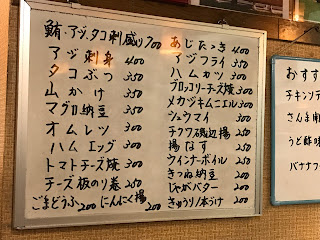 鮪・アジ、タコ刺盛り700
アジ刺身 400
タコぶつ 350
山かけ 350
マグロ納豆 350
オムレツ 300
ハムエッグ 300
トマトチーズ焼 300
チーズ板のり巻 250
ごまどうふ200 にんにく揚200
あじたゝき 400
アジフライ 350
ハムカツ 300
ブロッコリーチーズ焼 300
メカジキムニエル 300
シュウマイ 300
チクワ磯辺揚 250
揚なす 250
ウインナーボイル 250
きつね納豆 200
じゃがバター 200
きゅうり1本づけ 200
おすす
チキンソテ
さんま開
うど酢味
バナナフ